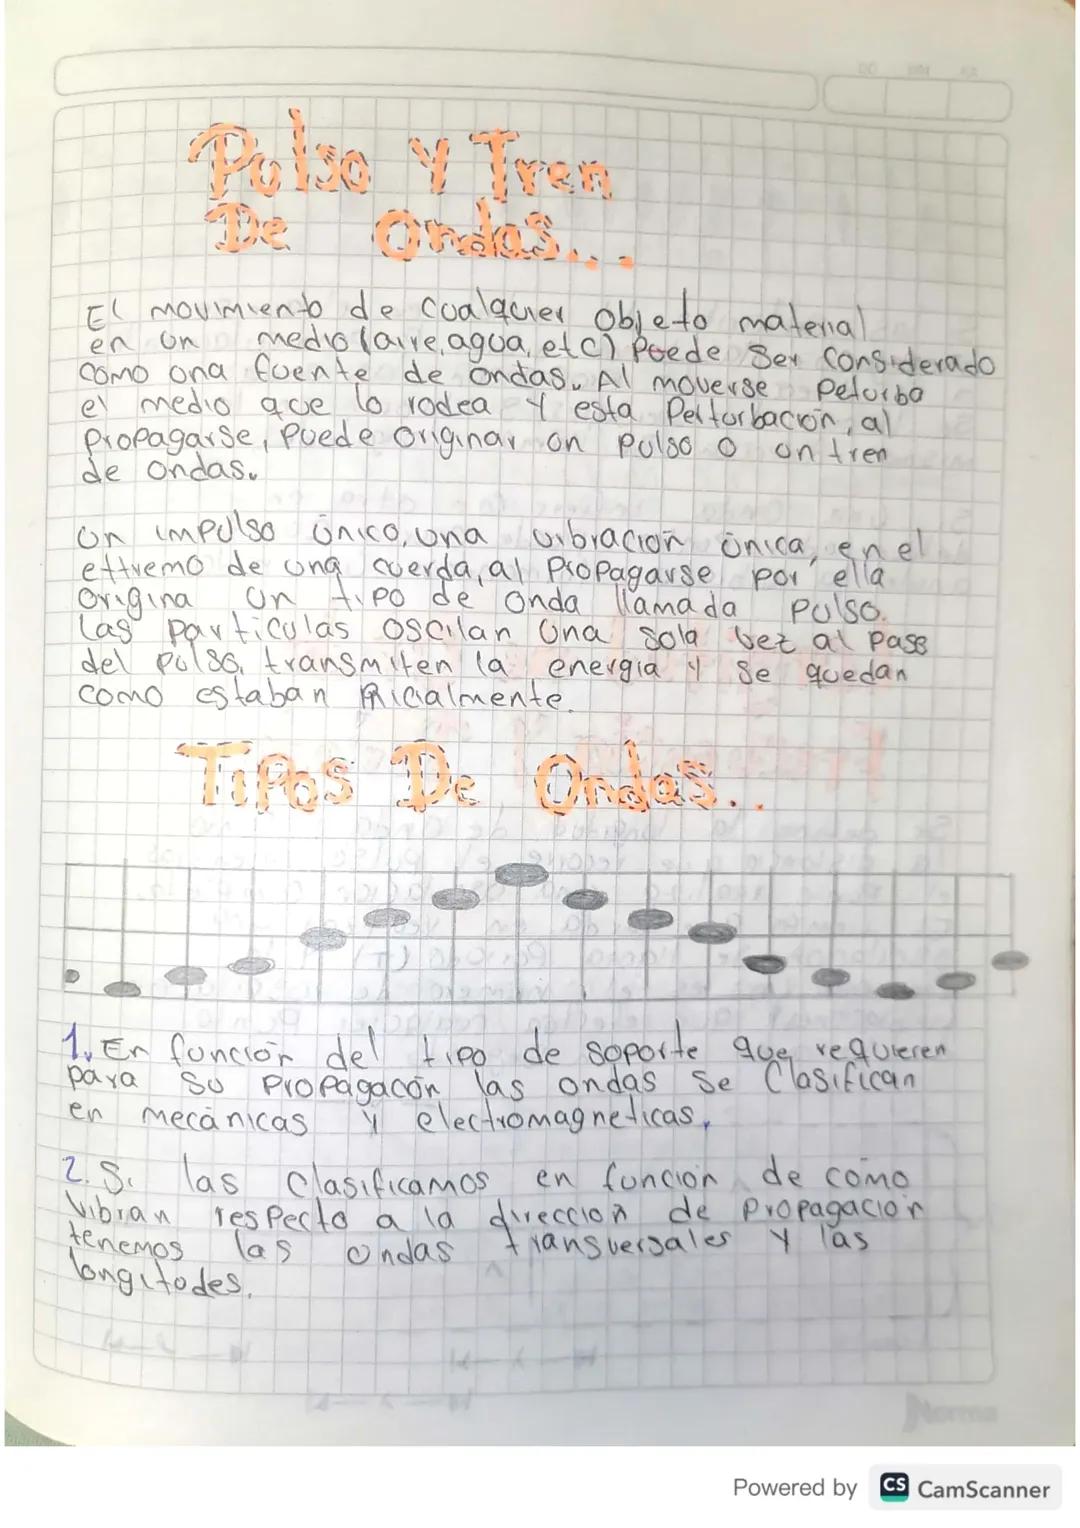 Pulso Y Tren
De Ondas...
El movimiento de cualquier objeto material
en un medio (aire, agua, etc) Puede Ser Considerado
como una fuente de ondas. Al moverse Peturba
el medio que lo rodea y esta Perturbación, al
Propagarse, Puede Originar un Pulso o un tren
de ondas.
Un impulso único, una vibración única, en el
extremo de una cuerda, al Propagarse por ella
Origina un tipo de onda llamada Pulso.
Las partículas oscilan una sola vez al paso
del pulso, transmiten la energía y se quedan
como estaban inicialmente.
Tipos De Ondas...
1. En función del tipo de soporte que requieren
para su Propagacón las ondas se Clasifican
en mecánicas y electromagneticas.
2. Si las Clasificamos en función de cómo
vibran respecto a la dirección de Propagación
tenemos las ondas transversales y las
longitudes.
Norma
Powered by CS CamScanner